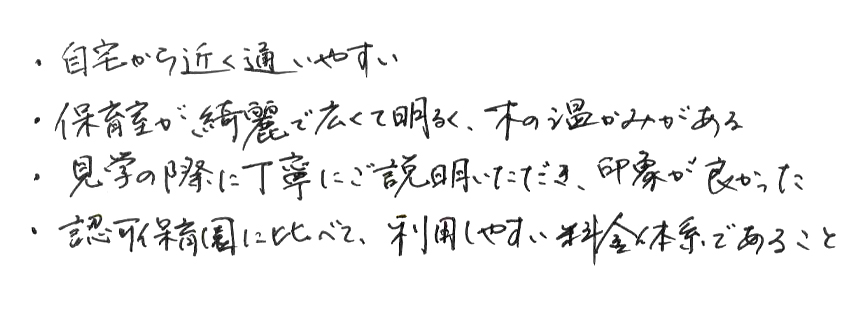 ・自宅から近く通いやすい
・保育室が綺麗で広くて明るく、木の温かみがある
・見学の際に丁寧にご説明いただき、印象が良かった
・認可保育園に比べて、利用しやすい料金体系であること